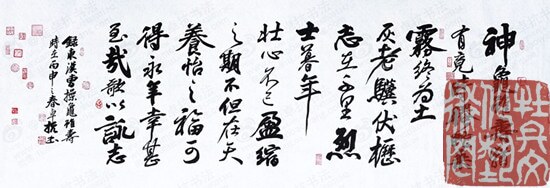 神龜雖壽
有竟
霧終為土
灰老驥伏櫪
志在千里烈
士暮年
壯心不已盈縮
之期不但在天
養怡之福可
得永年幸甚
至哉歌以詠志
錄東漢曹操龜雖壽
時在丙申之春